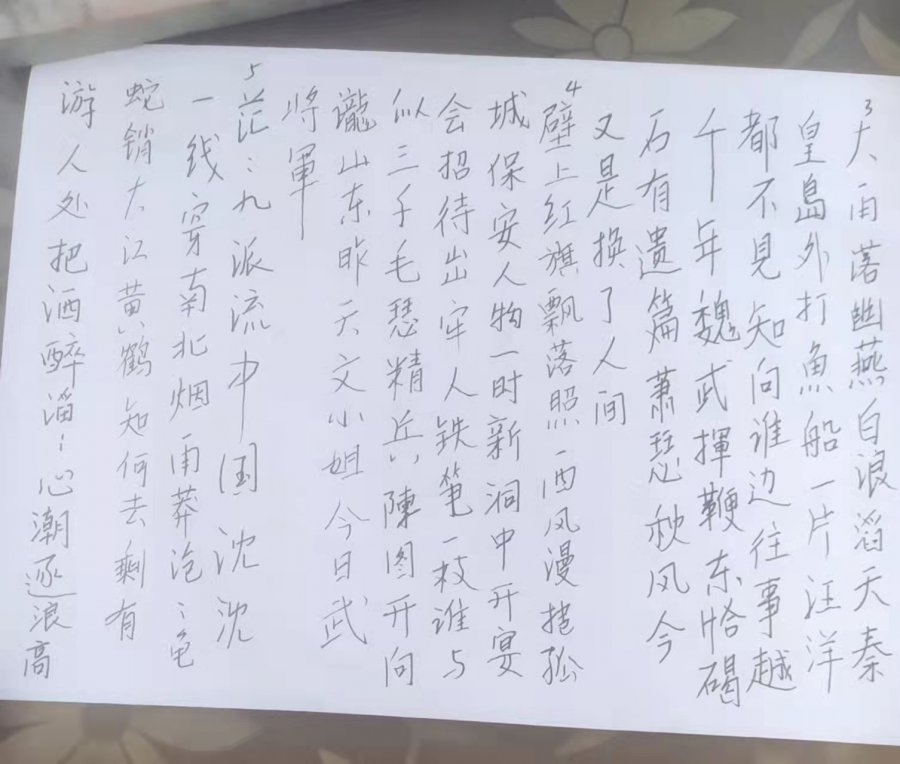 3大雨落幽燕白浪滔天秦
皇島外打魚船一片汪洋
都不見知向谁边往事越
千年魏武揮鞭东临碣
石有遗篇蕭瑟秋风今
又是换了人间
4壁上红旗飘落照西风漫捲孤
城保安人物一时新洞中开宴
会招待出牢人铁笔一枝谁与
似三千毛瑟精兵陳图开向
瀧山东昨天文小姐今日武
将軍
5茫:九派流中国沈沈
一线穿南北烟雨莽沧:龟
蛇锁大江黄鹤知何去剩有
游人处把酒酹滔:心潮逐浪高